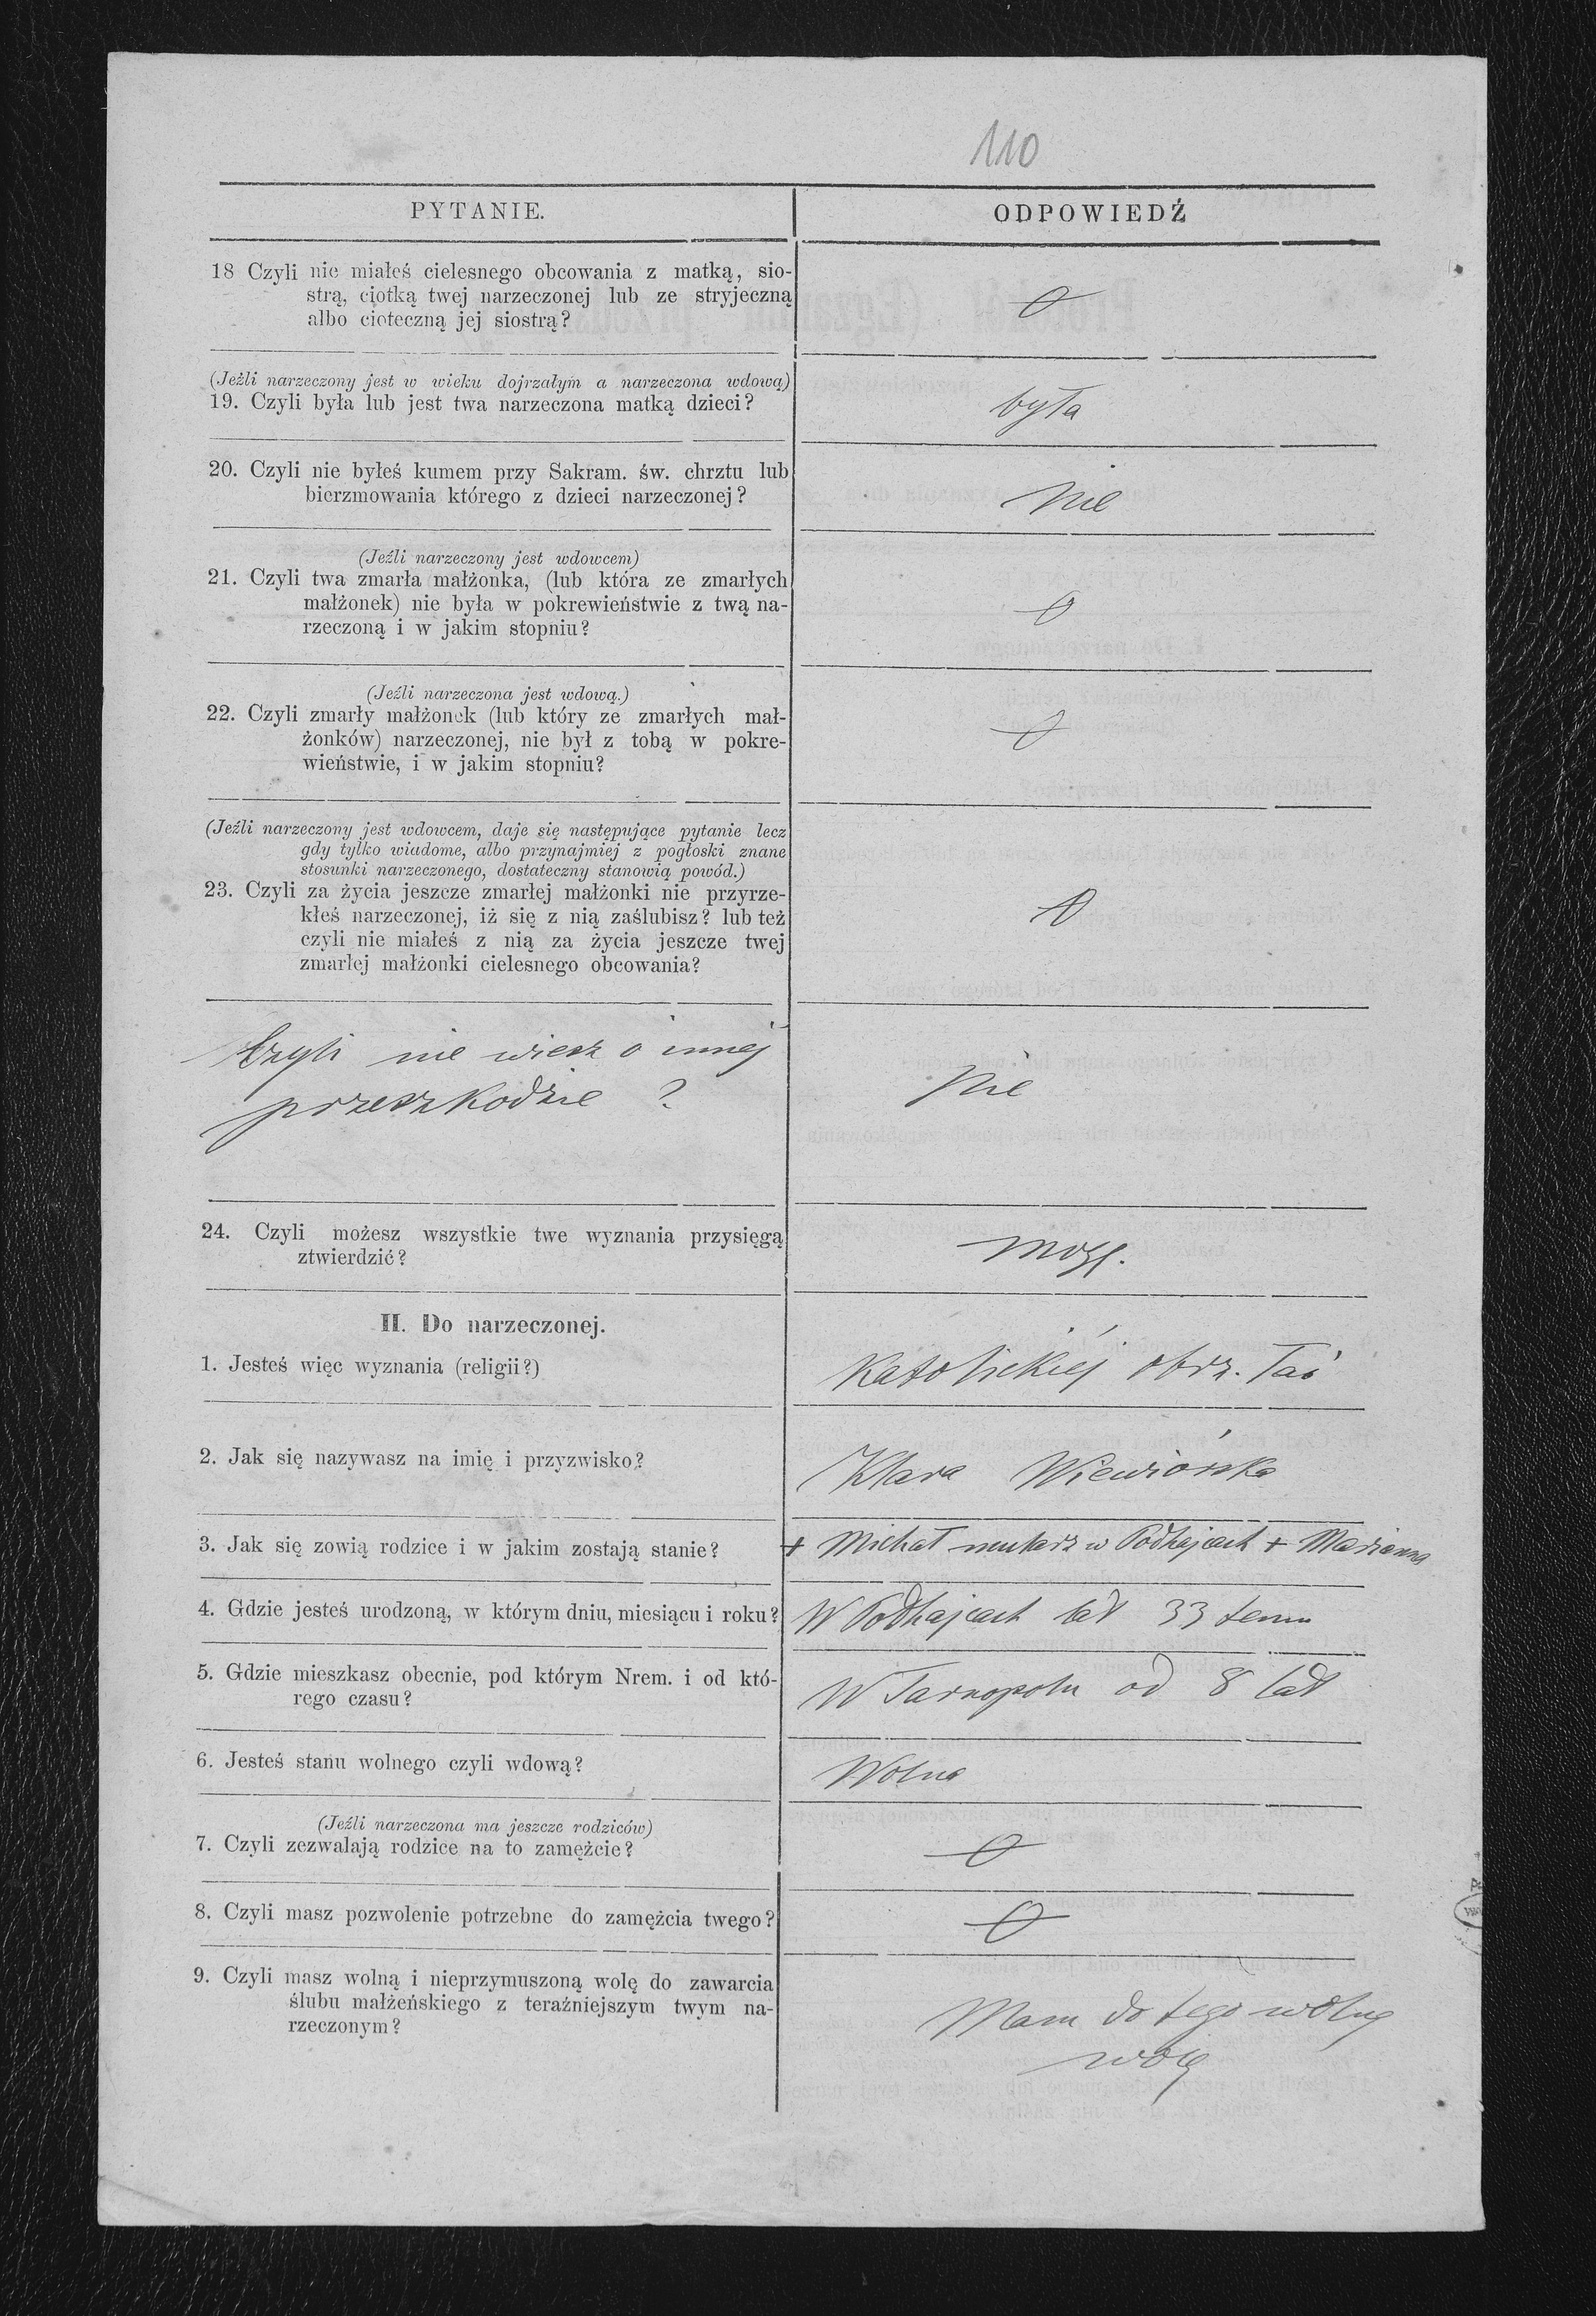 110
PYTANIE.
ODPOWIEDŹ
18 Czyli nie miałeś cielesnego obcowania z matką, sio-
strą, ciotką twej narzeczonej lub ze stryjeczną
albo cioteczną jej siostrą?
0
(Jeźli narzeczony jest w wieku dojrzałym a narzeczona wdową)
19. Czyli była lub jest twa narzeczona matką dzieci?
była
20. Czyli nie byłeś kumem przy Sakram. św. chrztu lub
bierzmowania którego z dzieci narzeczonej?
nie
(Jeźli narzeczony jest wdowcem)
21. Czyli twa zmarła małżonka, (lub która ze zmarłych
małżonek) nie była w pokrewieństwie z twą na-
rzeczoną i w jakim stopniu?
0
(Jeźli narzeczona jest wdową.)
22. Czyli zmarły małżonek (lub który ze zmarłych mał-
żonków) narzeczonej, nie był z tobą w pokre-
wieństwie, i w jakim stopniu?
0
(Jeźli narzeczony jest wdowcem, daje się następujące pytanie lecz
gdy tylko wiadome, albo przynajmiej z pogłoski znane
stosunki narzeczonego, dostateczny stanowią powód.)
23. Czyli za życia jeszcze zmarłej małżonki nie przyrze-
kłeś narzeczonej, iż się z nią zaślubisz? lub też
czyli nie miałeś z nią za życia jeszcze twej
zmarłej małżonki cielesnego obcowania?
0
Czyli nie wiesz o innej
przeszkodzie ?
nie
24. Czyli możesz wszystkie twe wyznania przysięgą
ztwierdzić?
mogę.
II. Do narzeczonej.
1. Jesteś więc wyznania (religii?)
Katolickiéj obrz. łać
2. Jak się nazywasz na imię i przyzwisko?
Klara Wiewiórska
3. Jak się zowią rodzice i w jakim zostają stanie?
+ Michał mularz w Podhajcach + Marianna
4. Gdzie jesteś urodzoną, w którym dniu, miesiącu i roku?
W Podhajcach lat 33 temu
5. Gdzie mieszkasz obecnie, pod którym Nrem. i od któ-
rego czasu?
W Tarnopolu od 8 lat
6. Jesteś stanu wolnego czyli wdową?
Wolna
(Jeźli narzeczona ma jeszcze rodziców)
7. Czyli zezwalają rodzice na to zamężcie?
0
8. Czyli masz pozwolenie potrzebne do zamężcia twego?
0
9. Czyli masz wolną i nieprzymuszoną wolę do zawarcia
ślubu małżeńskiego z teraźniejszym twym na-
rzeczonym?
Mam do tego wolną
wolę